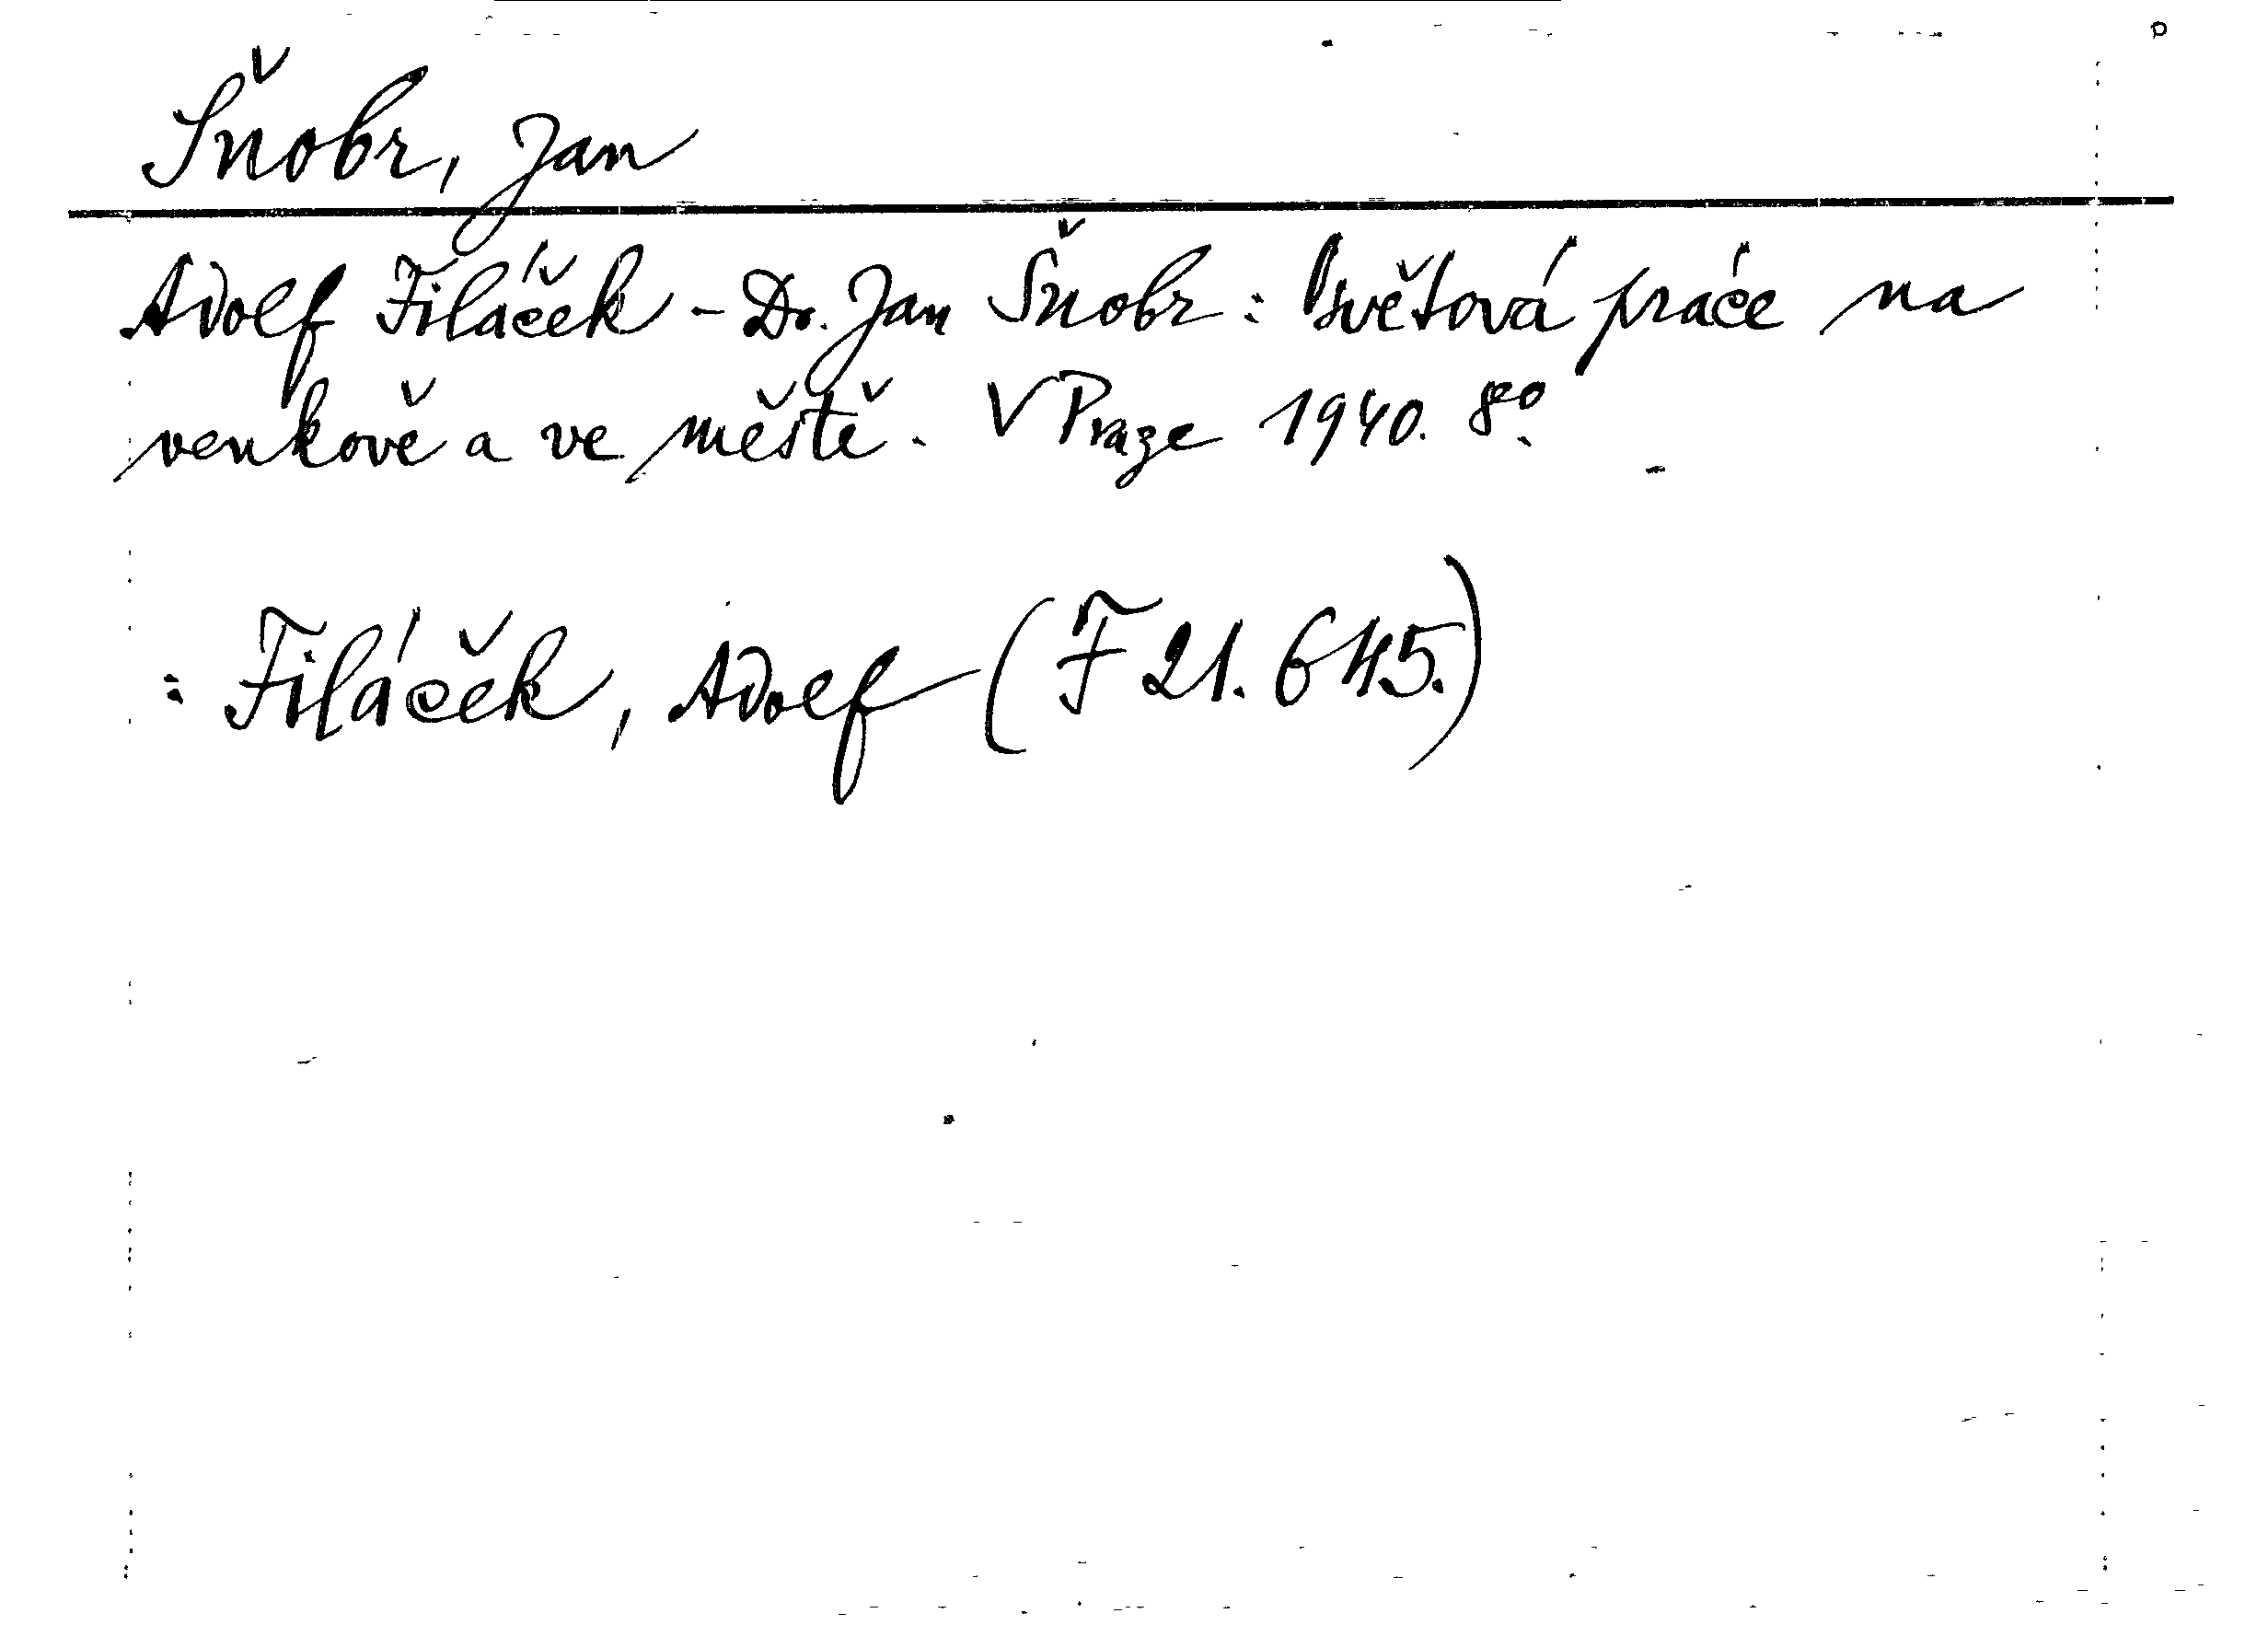 Šnobr, Jan
Adolf Filáček - Dr. Jan Šnobr: Osvětová práce na
venkově a ve městě. V Praze 1940. 8o.
: Filáček, Adolf (F 21.645.)